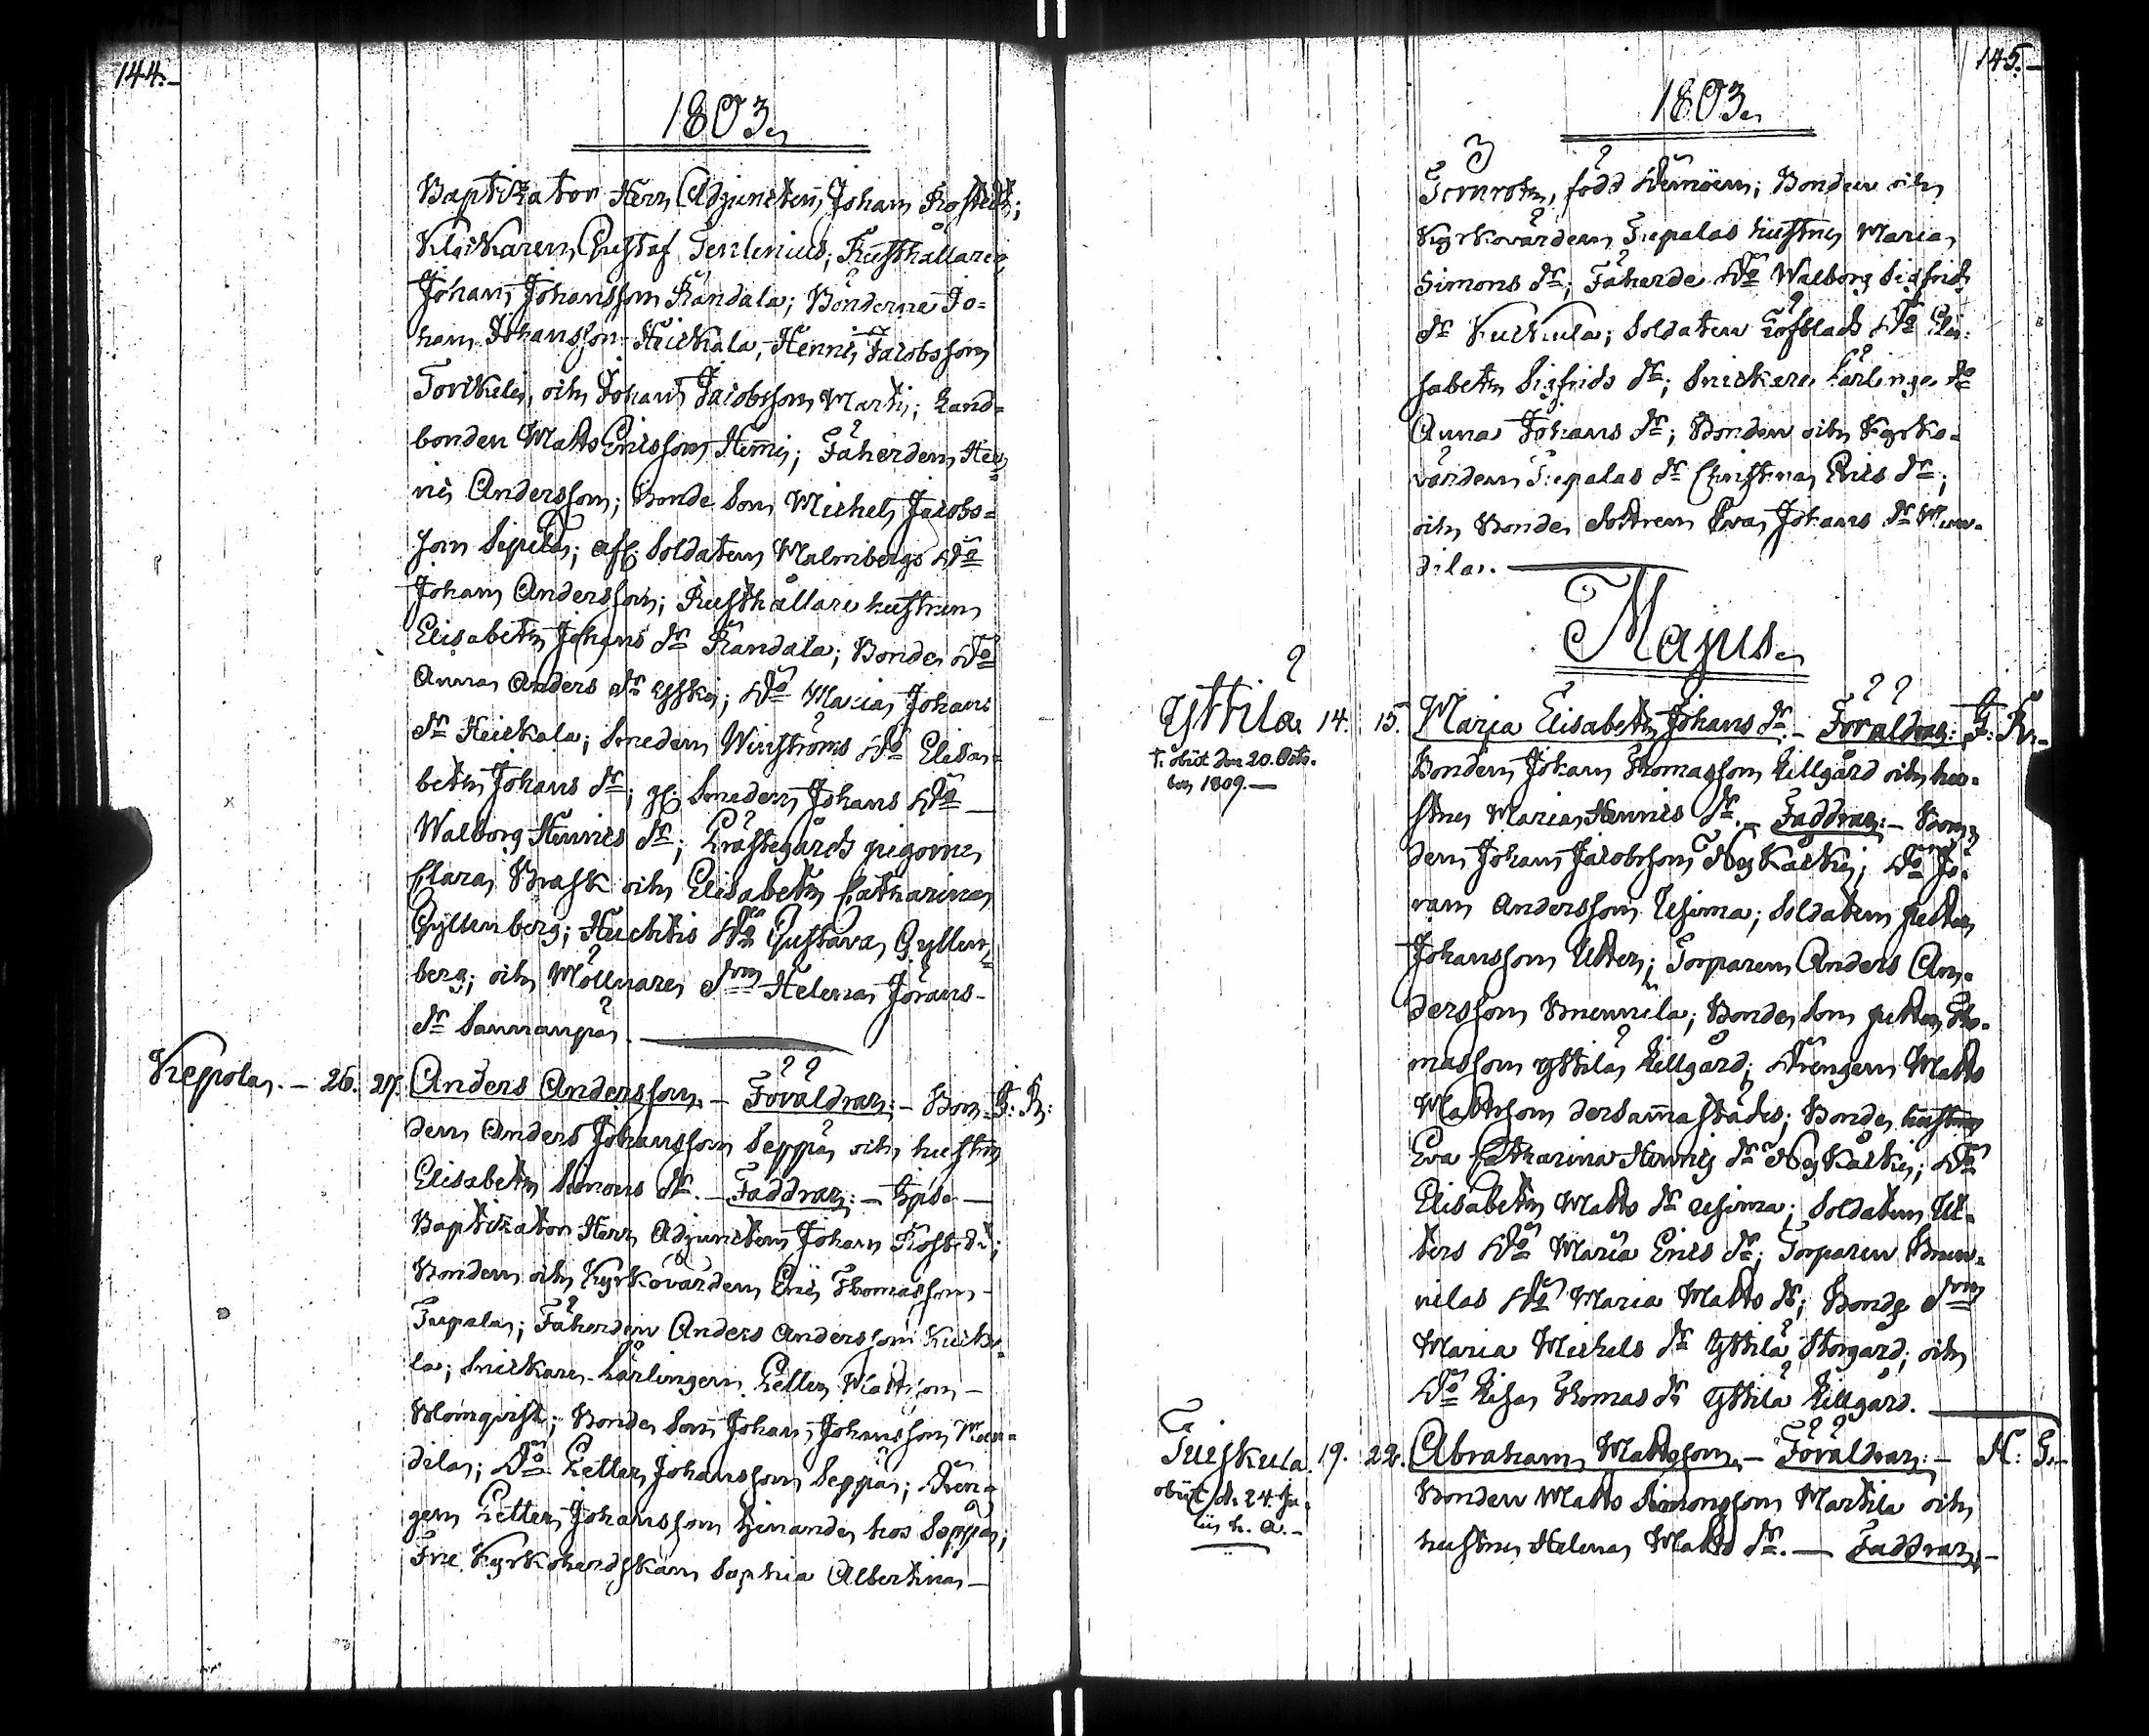 144.
1803.
Baptizator Herr Adjuncten Johan Rostedt;
Klåckaren Gustaf Tenlenius; Rusthållaren
Johan Johansson Randala; Bönderne Jo=
han Johansson Heickala, Henric Jacobsson
Torickeli, och Johan Jacobsson Marti; Land=
bonden Matts Ericsson Hemmi; Fäherden Hen=
ric Andersson; Bonde Son Michel Jacobs=
son Sipilä; afsk. Soldaten Malmbergs Do
Johan Andersson; Rusthållare hustrun
Elisabeth Johans dr Randala; Bonde Do
Anna Anders dr Yfski; Do Maria Johans
dr Heickala; Smeden Winströms Do Elisa=
beth Johans dr; gl. Smeden Johans Do
Walborg Henrics dr; Prästegårds pigorne
Clara Brask och Elisabeth Catharina
Gyllenberg; Huchtis Do Gustava Gyllen=
berg; och Möllnare Dom Helena Jörans
dr Sannanpää.
Kepola. 26. 27. Anders Andersson. Föräldrar: Bon= F: R:
den Anders Johansson Seppä och hustru
Elisabeth Simons dr. Faddrar: Ipse
Baptizator Herr Adjuncten Johan Rostedt;
Bonden och Kyrkovärden Eric Thomasson
Tupala; Fäherden Anders Andersson Kucku=
la; Snickare Lärlingen Petter Mattsson
Blomqvist; Bonde Son Johan Johansson Man=
dila; Do Petter Johansson Seppä; Dren=
gen Petter Johansson tjenande hos Seppä;
Fru Kyrkoherdskan Sophia Albertina
145.
1803.
Tornroth, född Wemöen; Bonden och
Kyrkovärden Tupalas hustru Maria
Simons dr; Fäherde Do Walborg Sigfrids
dr Kuckula; Soldaten Löfblads Do Eli=
sabeth Sigfrids dr; Snickare Lärlinge Do
Anna Johans dr; Bonden och Kyrko=
värden Tupalas dr Christina Erics dr;
och Bonde Dottren Eva Johans dr Man=
dila.
Majus.
Yttilä 14. 15. Maria Elisabeth Johans dr. Föräldrar: F: R.
†. obiit den 20. Octo=
ber 1809.
Bonden Johan Thomasson Lillgård och hu=
stru Maria Henrics dr. Faddrar: Bon=
den Johan Jacobsson Nykälki; Do Jö=
ran Andersson Uhima; Soldaten Petter
Johansson Utter; Torparen Anders An=
dersson Bruunila; Bonde Son Petter Tho=
masson Yttilä Lillgård; Drengen Matts
Mattsson dersammastädes; Bonde hustrun
Eva Catharina Henrics dr Nykälki; Do
Elisabeth Matts dr Uhima; Soldaten Ut=
ters Do Maria Erics dr; Torparen Bruu=
nilas Do Maria Matts dr; Bonde Dom
Maria Michels dr Yttilä Storgård; och
Do Lisa Thomas dr Yttilä Lillgård.
Tuiskula. 19. 22. Abraham Mattsson. Föräldrar: H: G.
obiit d. 24. Ju=
lii h. a.
Bonden Matts Simonsson Martila och
hustru Helena Matts dr. Faddrar: